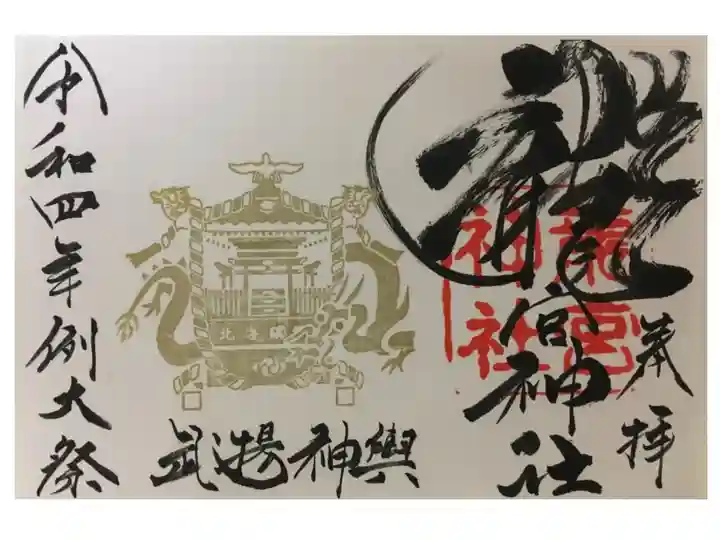 奉拝
龍宮神社
龍宮
神社
武揚神輿
北海
令和四年例大祭